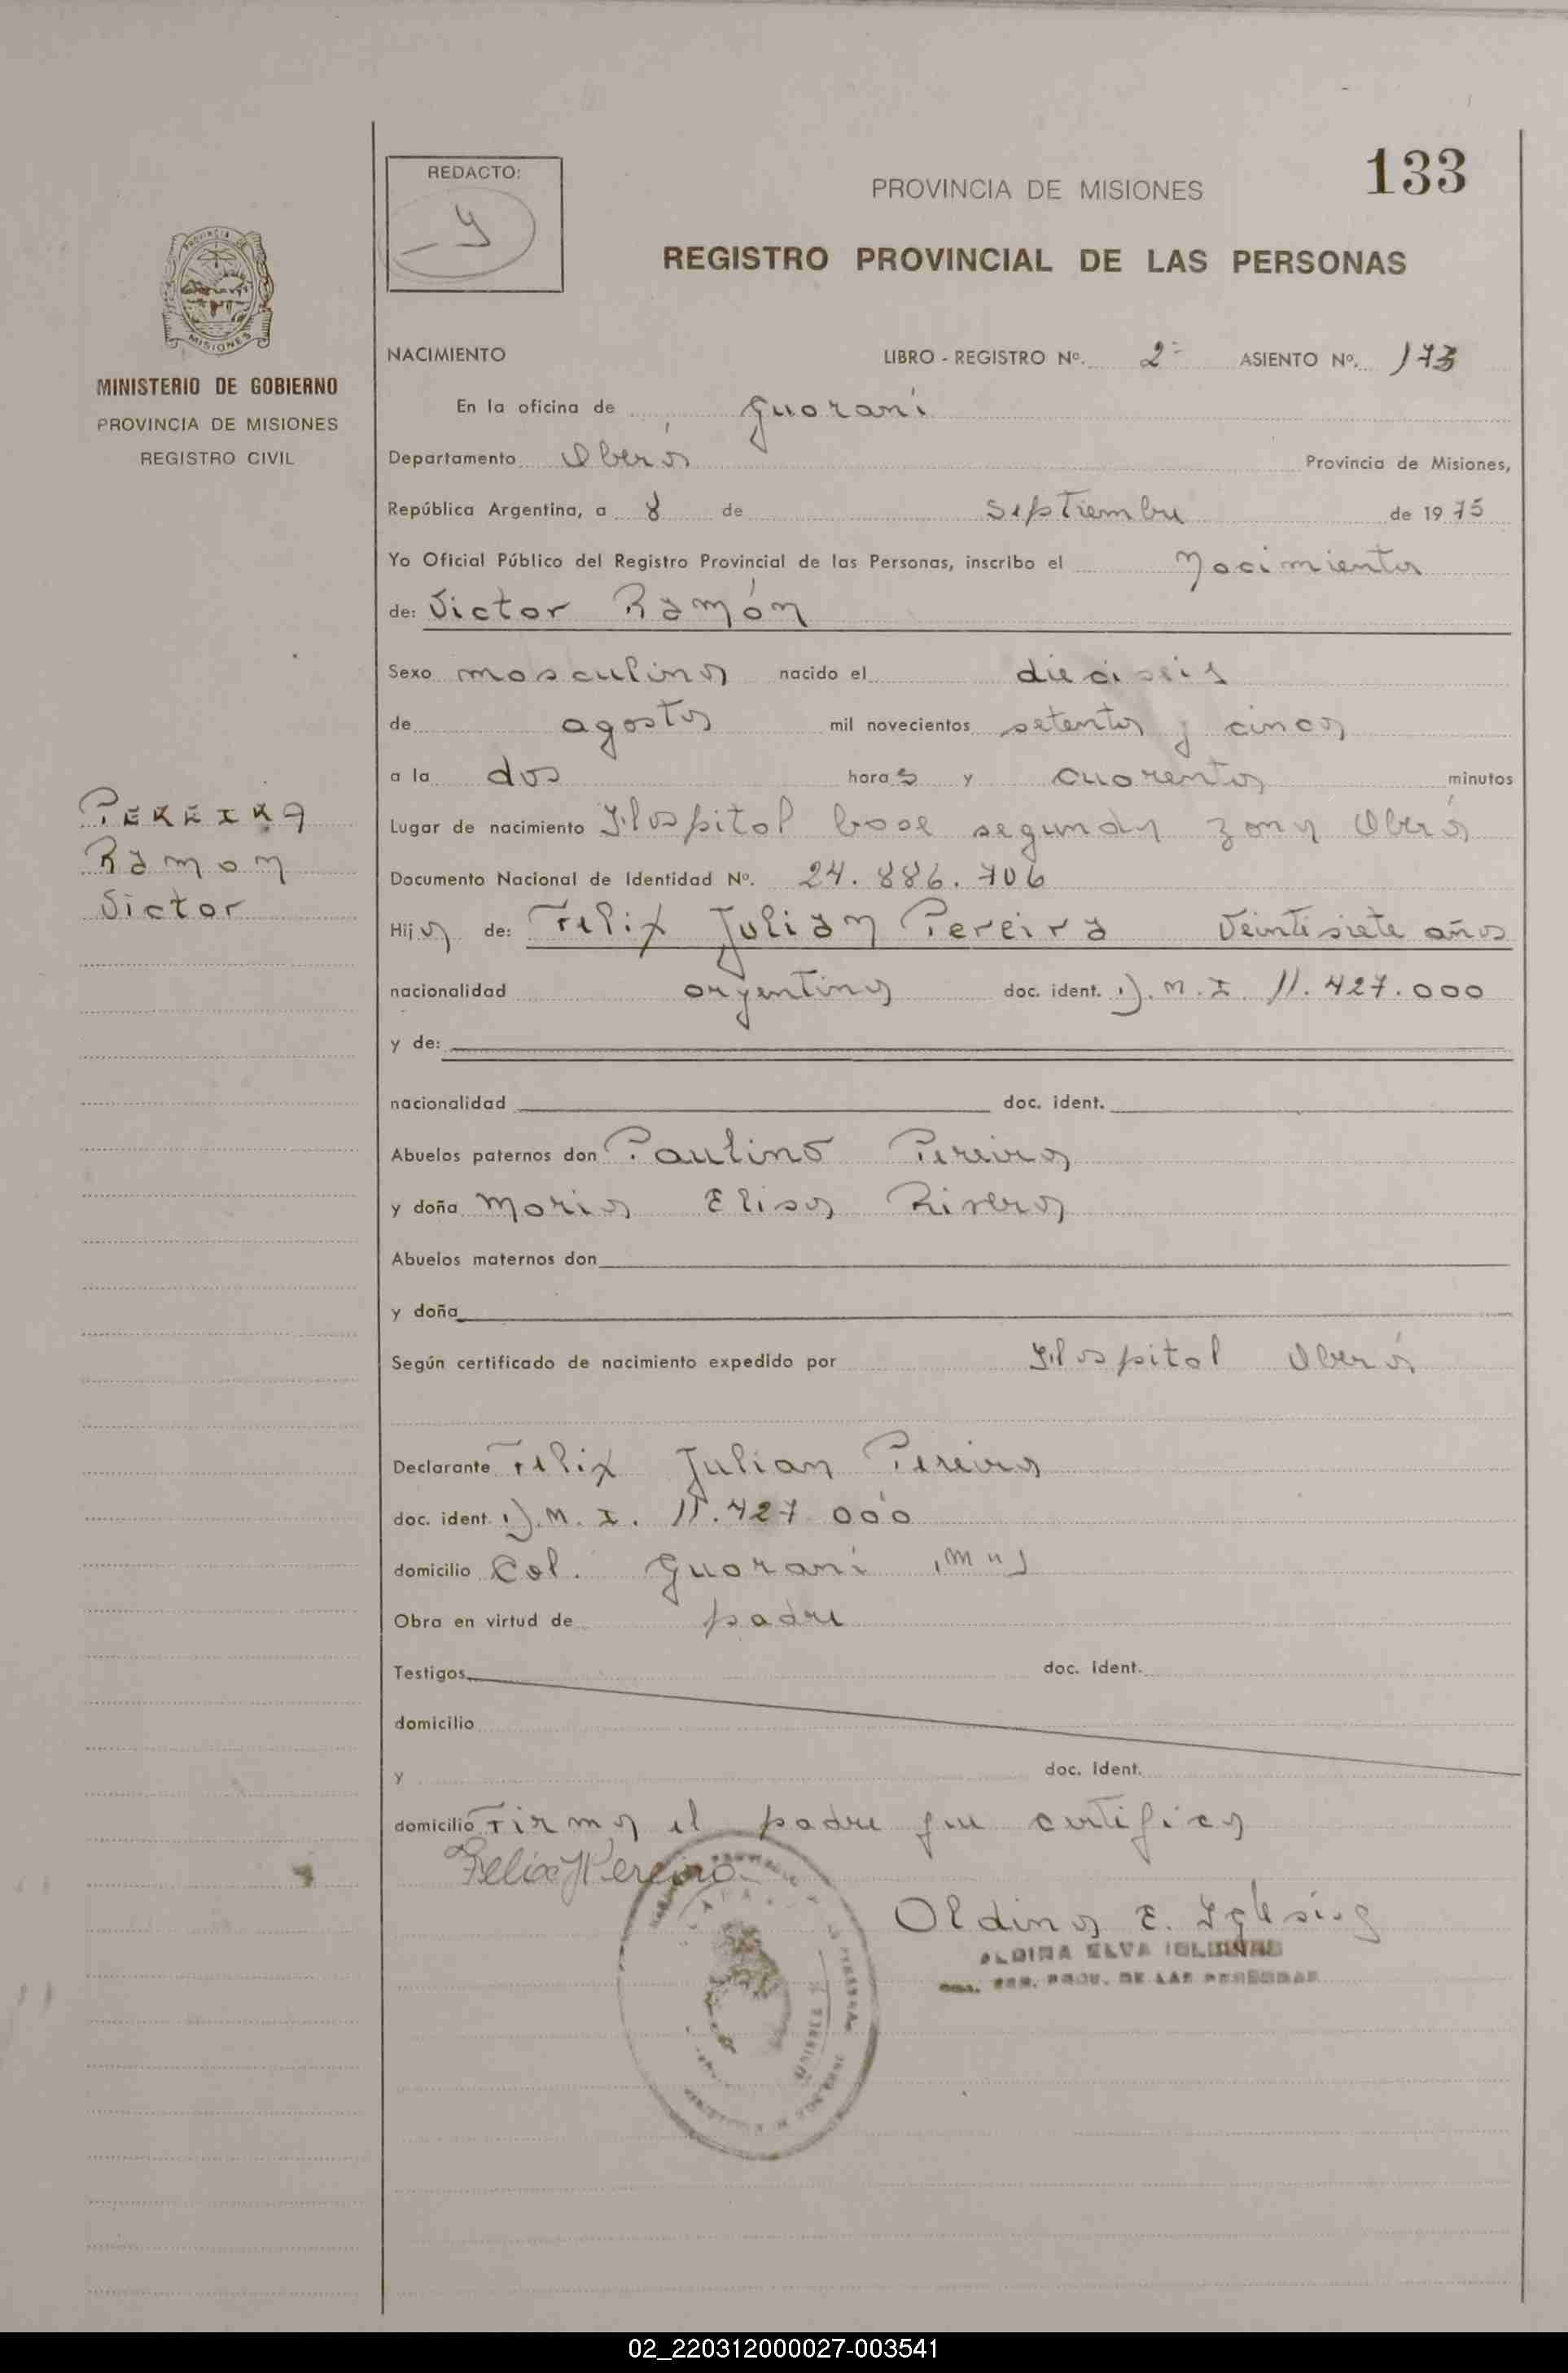 133
REDACTO:
PROVINCIA DE MISIONES
REGISTRO PROVINCIAL DE LAS PERSONAS
MISIONES
MINISTERIO DE GOBIERNO
PROVINCIA DE MISIONES
REGISTRO CIVIL
NACIMIENTO LIBRO - REGISTRO Nº. 2º ASIENTO Nº. 173
En la oficina de Guarani
Departamento Oberá Provincia de Misiones,
República Argentina, a 8 de Septiembre de 1975
Yo Oficial Público del Registro Provincial de las Personas, inscribo el Nacimiento
de: Victor Ramón
Sexo masculino nacido el dieciseis
de agosto mil novecientos setenta y cinco
a la dos horas y cuarenta minutos
PEREIRA
Ramon
Victor
Lugar de nacimiento Hospital base segunda zona Oberá
Documento Nacional de Identidad Nº. 24.886.706
Hijo de: Felix Julian Pereira Veintisiete años
nacionalidad argentino doc. ident. D.M.I 11.427.000
y de:
nacionalidad doc. ident.
Abuelos paternos don Paulino Pereira
y doña Maria Elisa Rivero
Abuelos maternos don
y doña
Según certificado de nacimiento expedido por Hospital Oberá
Declarante Felix Julian Pereira
doc. ident. D.M.I. 11.427.000
domicilio Col. Guarani
Obra en virtud de padre
Testigos doc. ident.
domicilio
y doc. ident.
domicilio Firma el padre que certifica
Felix J Pereira
Oldina E. Iglesias
ALDINA ELVA IGLESIAS
REG. PROV. DE LAS PERSONAS
02_220312000027-003541